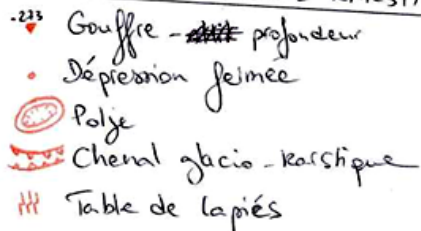 -273 Gouffre - profondeur
Dépression fermée
Polje
Chenal glacio-karstique
Table de lapiés